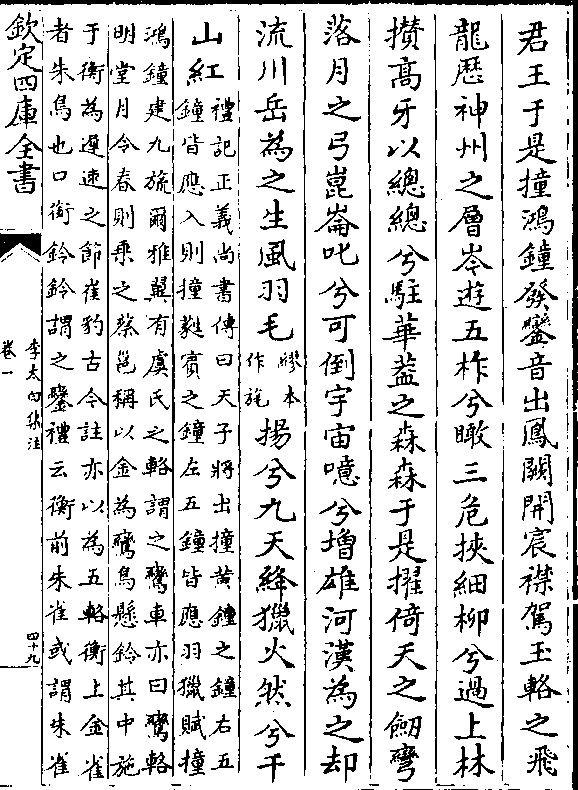 君王于是撞鴻鐘發鑾音出鳳闕開宸襟駕玉輅之飛
龍歴神州之層岑遊五柞兮瞰三危挾細柳兮過上林
攢高牙以總總兮駐華葢之森森于是擢倚天之劒彎
落月之弓崑崙叱兮可倒宇宙噫兮増雄河漢為之却
流川岳為之生風羽毛繆本作旄揚兮九天絳獵火然兮千
山紅
禮記正義尚書傳曰天子將出撞黄鐘之鐘右五
鐘皆應入則撞蕤賓之鐘左五鐘皆應羽獵賦撞
鴻鐘建九旒爾雅翼有虞氏之輅謂之鸞車亦曰鸞輅
明堂月令春則乘之蔡邕稱以金為鸞鳥懸鈴其中施
于衡為遲速之節崔豹古今註亦以為五輅衡上金雀
者朱鳥也口銜鈴鈴謂之鑾禮云衡前朱雀或謂朱雀
欽定四庫全書
李太白集注
卷一
四十九